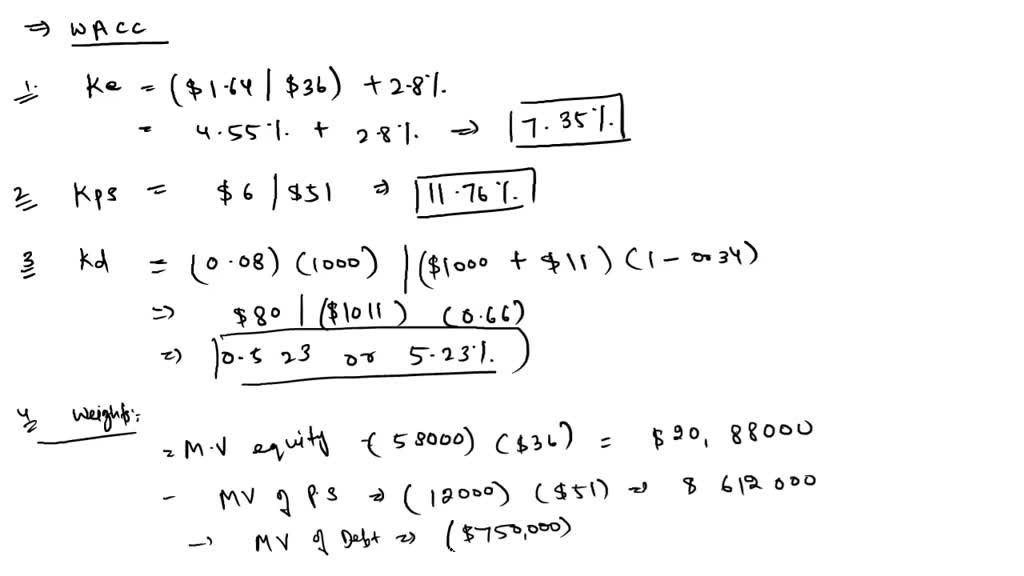 ⇒ WACC
1. Ke = ($1.64 | $36) + 2.8%
= 4.55%. + 2.8%. ⇒ 7.35%.
2 Kps = $6 | $51 ⇒ 11.76%.
3 Kd = (0.08) (1000) | ($1000 + $11) (1 - 0.34)
⇒ $80 | ($1011) (0.66)
⇒ 0.523 or 5.23%.
4 Weights:
= M.V equity - (58000) ($36) = $20,88000
- MV of P.S ⇒ (12000) ($51) ⇒ 8 612000
→ MV of Debt ⇒ ($750,000)